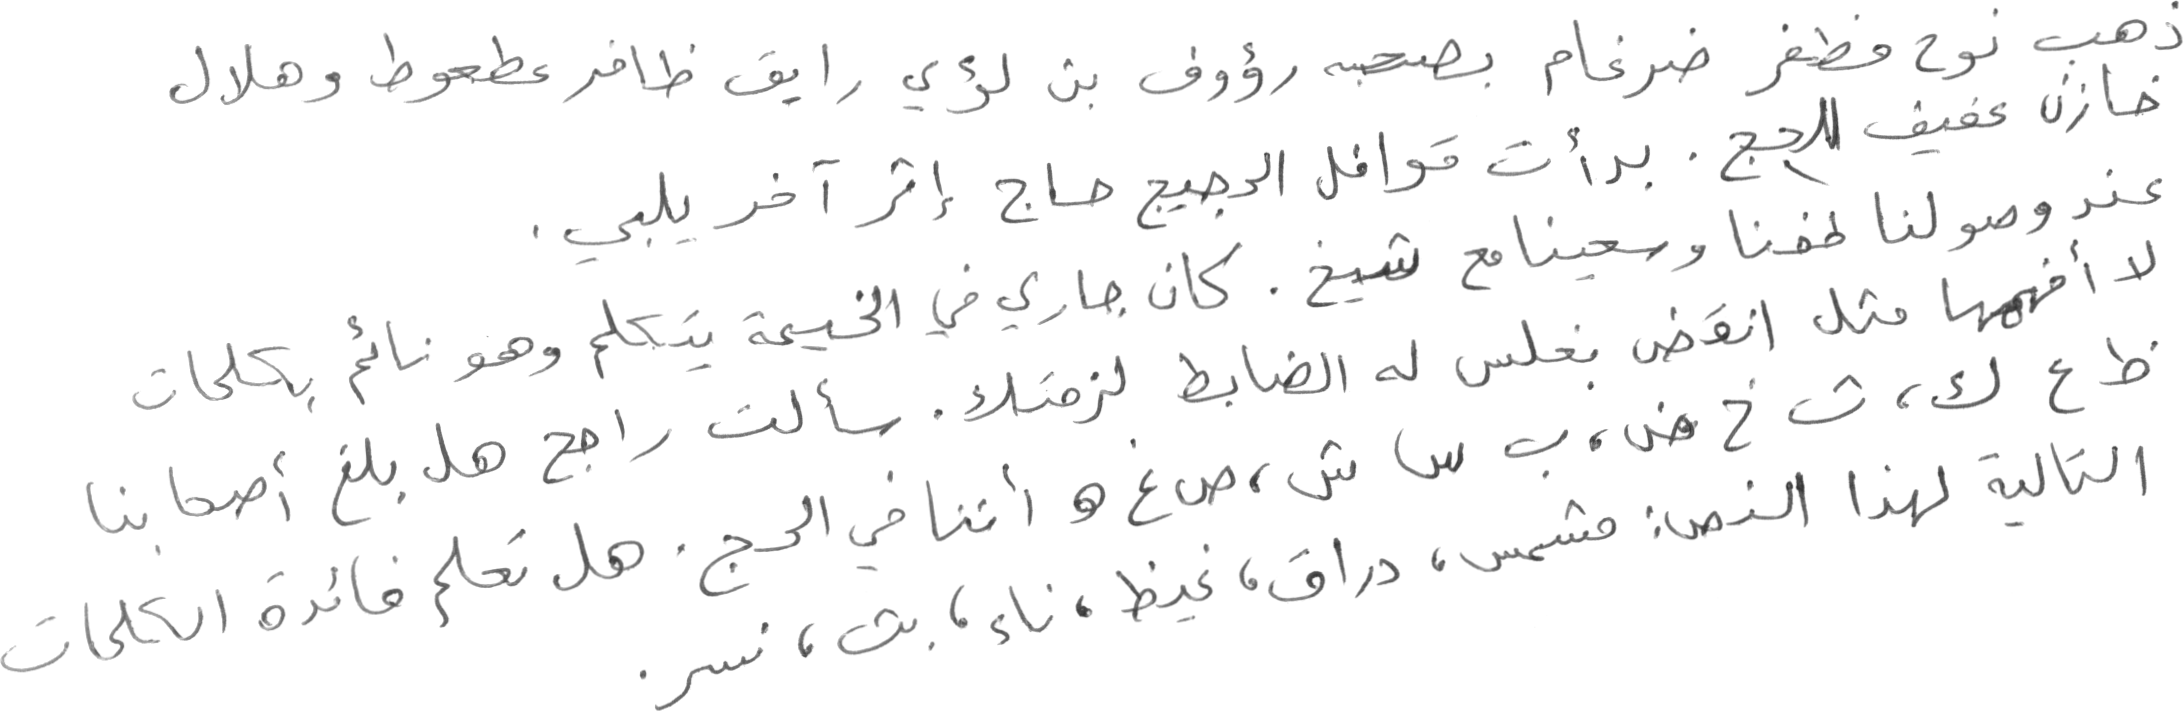 ذهب نوح مظفر ضرغام بصحبه رؤوف بن لؤي رايق ظافر عطعوط وهلال
خازن عفيف للحج . بدأت قوافل الحجيج حاج إثر آخر يلبي .
عند وصولنا طفنا وسعينا مع شيخ . كان جاري في الخيمة يتكلم وهو نائم بكلمات
لا أفهمها مثل انقض بغلس له الضابط لزمتك . سألت راجح هل بلغ أصحابنا
ظ ع ك ، ث خ ض ، ب س ش ، ص غ ه أننا في الحج . هل تعلم فائدة الكلمات
التالية لهذا النص : مشمس ، دراق ، غيظ ، ناء ، بث ، نسر .